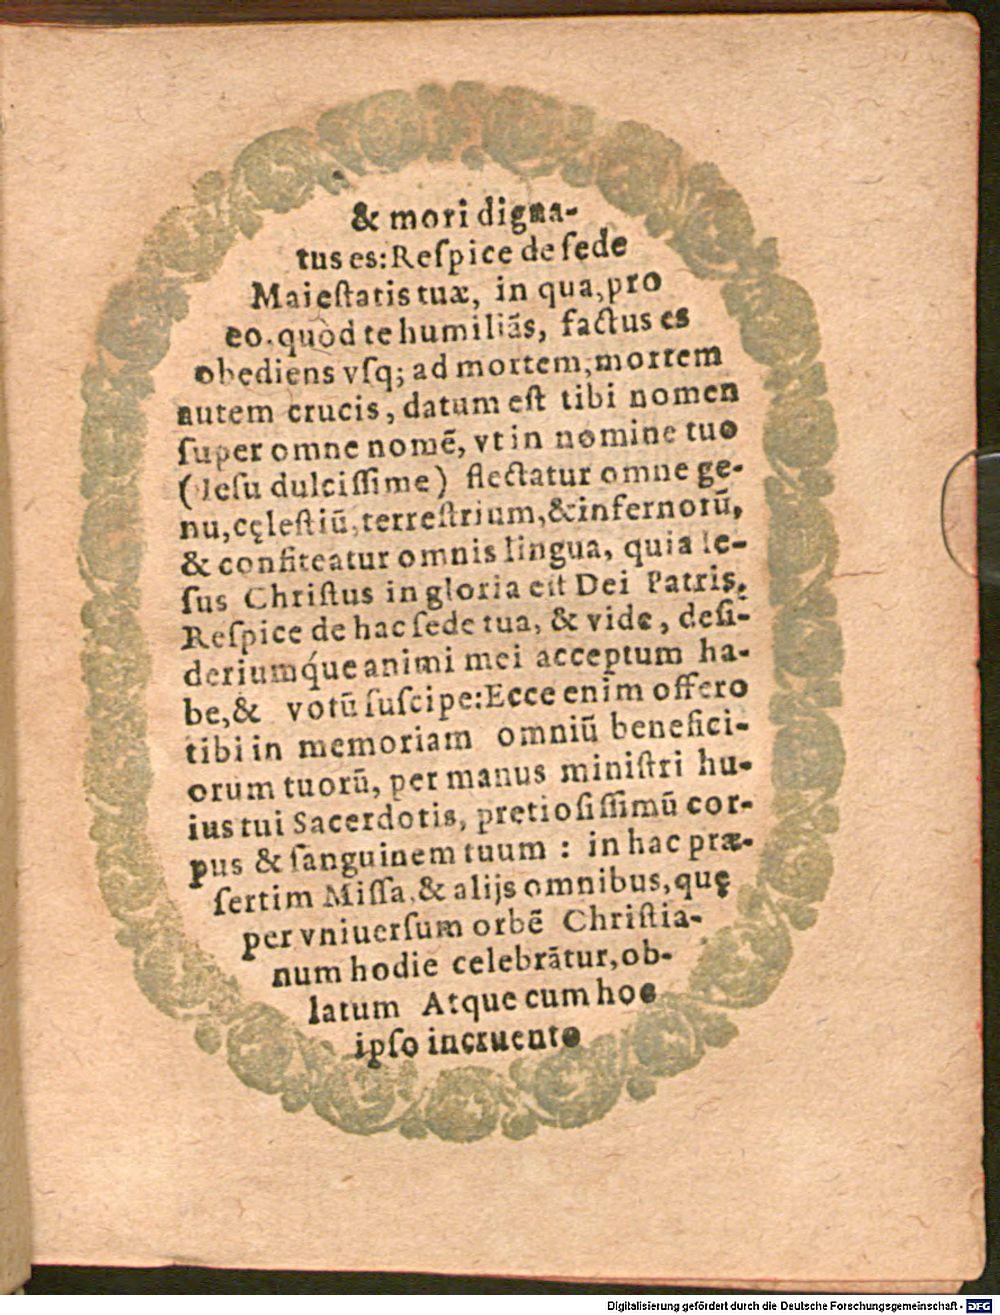 & mori digna-
tus es: Reſpice de ſede
Maieſtatis tuæ, in qua, pro
eo. quòd te humiliãs, factus es
obediens vſq; ad mortem, mortem
autem crucis, datum eſt tibi nomen
ſuper omne nomẽ, vt in nomine tuo
(Ieſu dulciſſime) flectatur omne ge-
nu, cęleſtiũ, terreſtrium, & infernorũ,
& confiteatur omnis lingua, quia Ie-
ſus Chriſtus in gloria eſt Dei Patris.
Reſpice de hac ſede tua, & vide, deſi-
deriumq́ue animi mei acceptum ha-
be, & votũ ſuſcipe: Ecce enim offero
tibi in memoriam omniũ benefici-
orum tuorũ, per manus miniſtri hu-
ius tui Sacerdotis, pretioſiſſimũ cor-
pus & ſanguinem tuum : in hac præ-
ſertim Miſſa, & alijs omnibus, quę
per vniuerſum orbẽ Chriſtia-
num hodie celebrãtur, ob-
latum Atque cum hoc
ipſo incruento
Digitalisierung gefördert durch die Deutsche Forschungsgemeinschaft - DFG